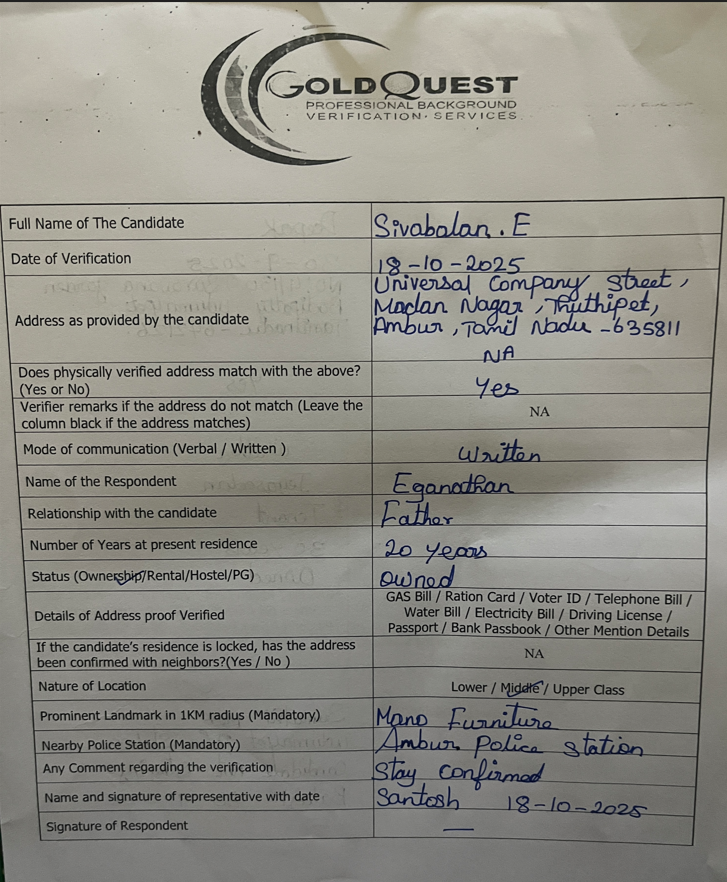 GOLDQUEST
PROFESSIONAL BACKGROUND
VERIFICATION · SERVICES
Full Name of The Candidate
Sivabalan . E
Date of Verification
18-10-2025
Address as provided by the candidate
Universal Company Street,
Madan Nagar, Thuthipet,
Ambur, Tamil Nadu -635811
NA
Does physically verified address match with the above?
(Yes or No)
Yes
Verifier remarks if the address do not match (Leave the
column black if the address matches)
NA
Mode of communication (Verbal / Written )
Written
Name of the Respondent
Eganathan
Relationship with the candidate
Father
Number of Years at present residence
20 years
Status (Ownership/Rental/Hostel/PG)
owned
Details of Address proof Verified
GAS Bill / Ration Card / Voter ID / Telephone Bill /
Water Bill / Electricity Bill / Driving License /
Passport / Bank Passbook / Other Mention Details
If the candidate's residence is locked, has the address
been confirmed with neighbors?(Yes / No )
NA
Nature of Location
Lower / Middle / Upper Class
Prominent Landmark in 1KM radius (Mandatory)
Mano Furniture
Nearby Police Station (Mandatory)
Ambur Police Station
Any Comment regarding the verification
Stay confirmed
Name and signature of representative with date
Santosh 18-10-2025
Signature of Respondent
—